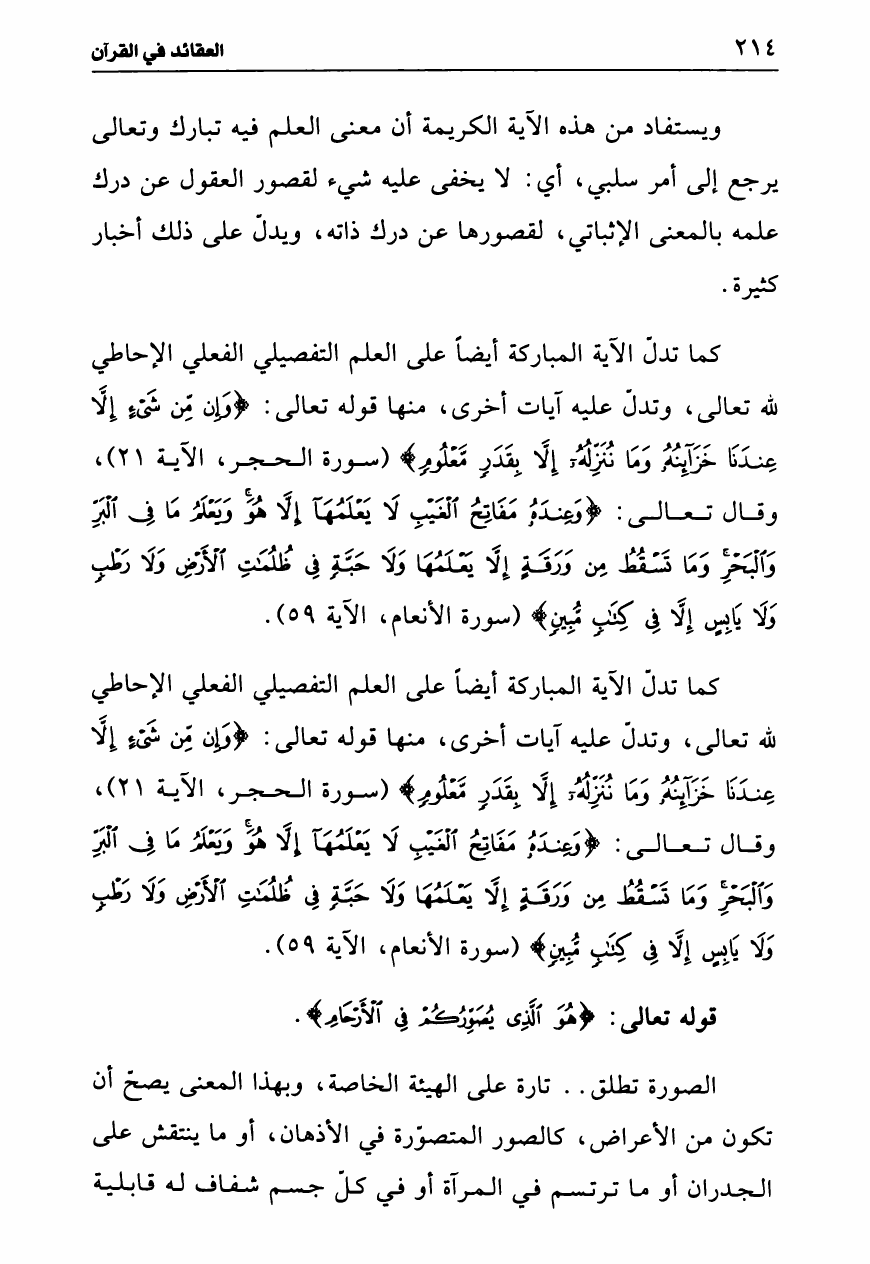 ٢١٤ العقائد في القرآن
ويستفاد من هذه الآية الكريمة أن معنى العلم فيه تبارك وتعالى
يرجع إلى أمر سلبي، أي: لا يخفى عليه شيء لقصور العقول عن درك
علمه بالمعنى الإثباتي، لقصورها عن درك ذاته، ويدلّ على ذلك أخبار
كثيرة.
كما تدلّ الآية المباركة أيضاً على العلم التفصيلي الفعلي الإحاطي
لله تعالى، وتدلّ عليه آيات أخرى، منها قوله تعالى: ﴿وَإِن مِّن شَيْءٍ إِلَّا
عِندَنَا خَزَآئِنُهُۥ وَمَا نُنَزِّلُهُۥٓ إِلَّا بِقَدَرٍ مَّعْلُومٍ﴾ (سورة الحجر، الآية ٢١)،
وقال تعالى: ﴿وَعِندَهُۥ مَفَاتِحُ ٱلْغَيْبِ لَا يَعْلَمُهَآ إِلَّا هُوَۚ وَيَعْلَمُ مَا فِى ٱلْبَرِّ
وَٱلْبَحْرِۚ وَمَا تَسْقُطُ مِن وَرَقَةٍ إِلَّا يَعْلَمُهَا وَلَا حَبَّةٍ فِى ظُلُمَٰتِ ٱلْأَرْضِ وَلَا رَطْبٍ
وَلَا يَابِسٍ إِلَّا فِى كِتَٰبٍ مُّبِينٍ﴾ (سورة الأنعام، الآية ٥٩).
كما تدلّ الآية المباركة أيضاً على العلم التفصيلي الفعلي الإحاطي
لله تعالى، وتدلّ عليه آيات أخرى، منها قوله تعالى: ﴿وَإِن مِّن شَيْءٍ إِلَّا
عِندَنَا خَزَآئِنُهُۥ وَمَا نُنَزِّلُهُۥٓ إِلَّا بِقَدَرٍ مَّعْلُومٍ﴾ (سورة الحجر، الآية ٢١)،
وقال تعالى: ﴿وَعِندَهُۥ مَفَاتِحُ ٱلْغَيْبِ لَا يَعْلَمُهَآ إِلَّا هُوَۚ وَيَعْلَمُ مَا فِى ٱلْبَرِّ
وَٱلْبَحْرِۚ وَمَا تَسْقُطُ مِن وَرَقَةٍ إِلَّا يَعْلَمُهَا وَلَا حَبَّةٍ فِى ظُلُمَٰتِ ٱلْأَرْضِ وَلَا رَطْبٍ
وَلَا يَابِسٍ إِلَّا فِى كِتَٰبٍ مُّبِينٍ﴾ (سورة الأنعام، الآية ٥٩).
قوله تعالى: ﴿هُوَ ٱلَّذِى يُصَوِّرُكُمْ فِى ٱلْأَرْحَامِ﴾.
الصورة تطلق.. تارة على الهيئة الخاصة، وبهذا المعنى يصحّ أن
تكون من الأعراض، كالصور المتصوّرة في الأذهان، أو ما ينتقش على
الجدران أو ما ترتسم في المرآة أو في كلّ جسم شفاف له قابلية